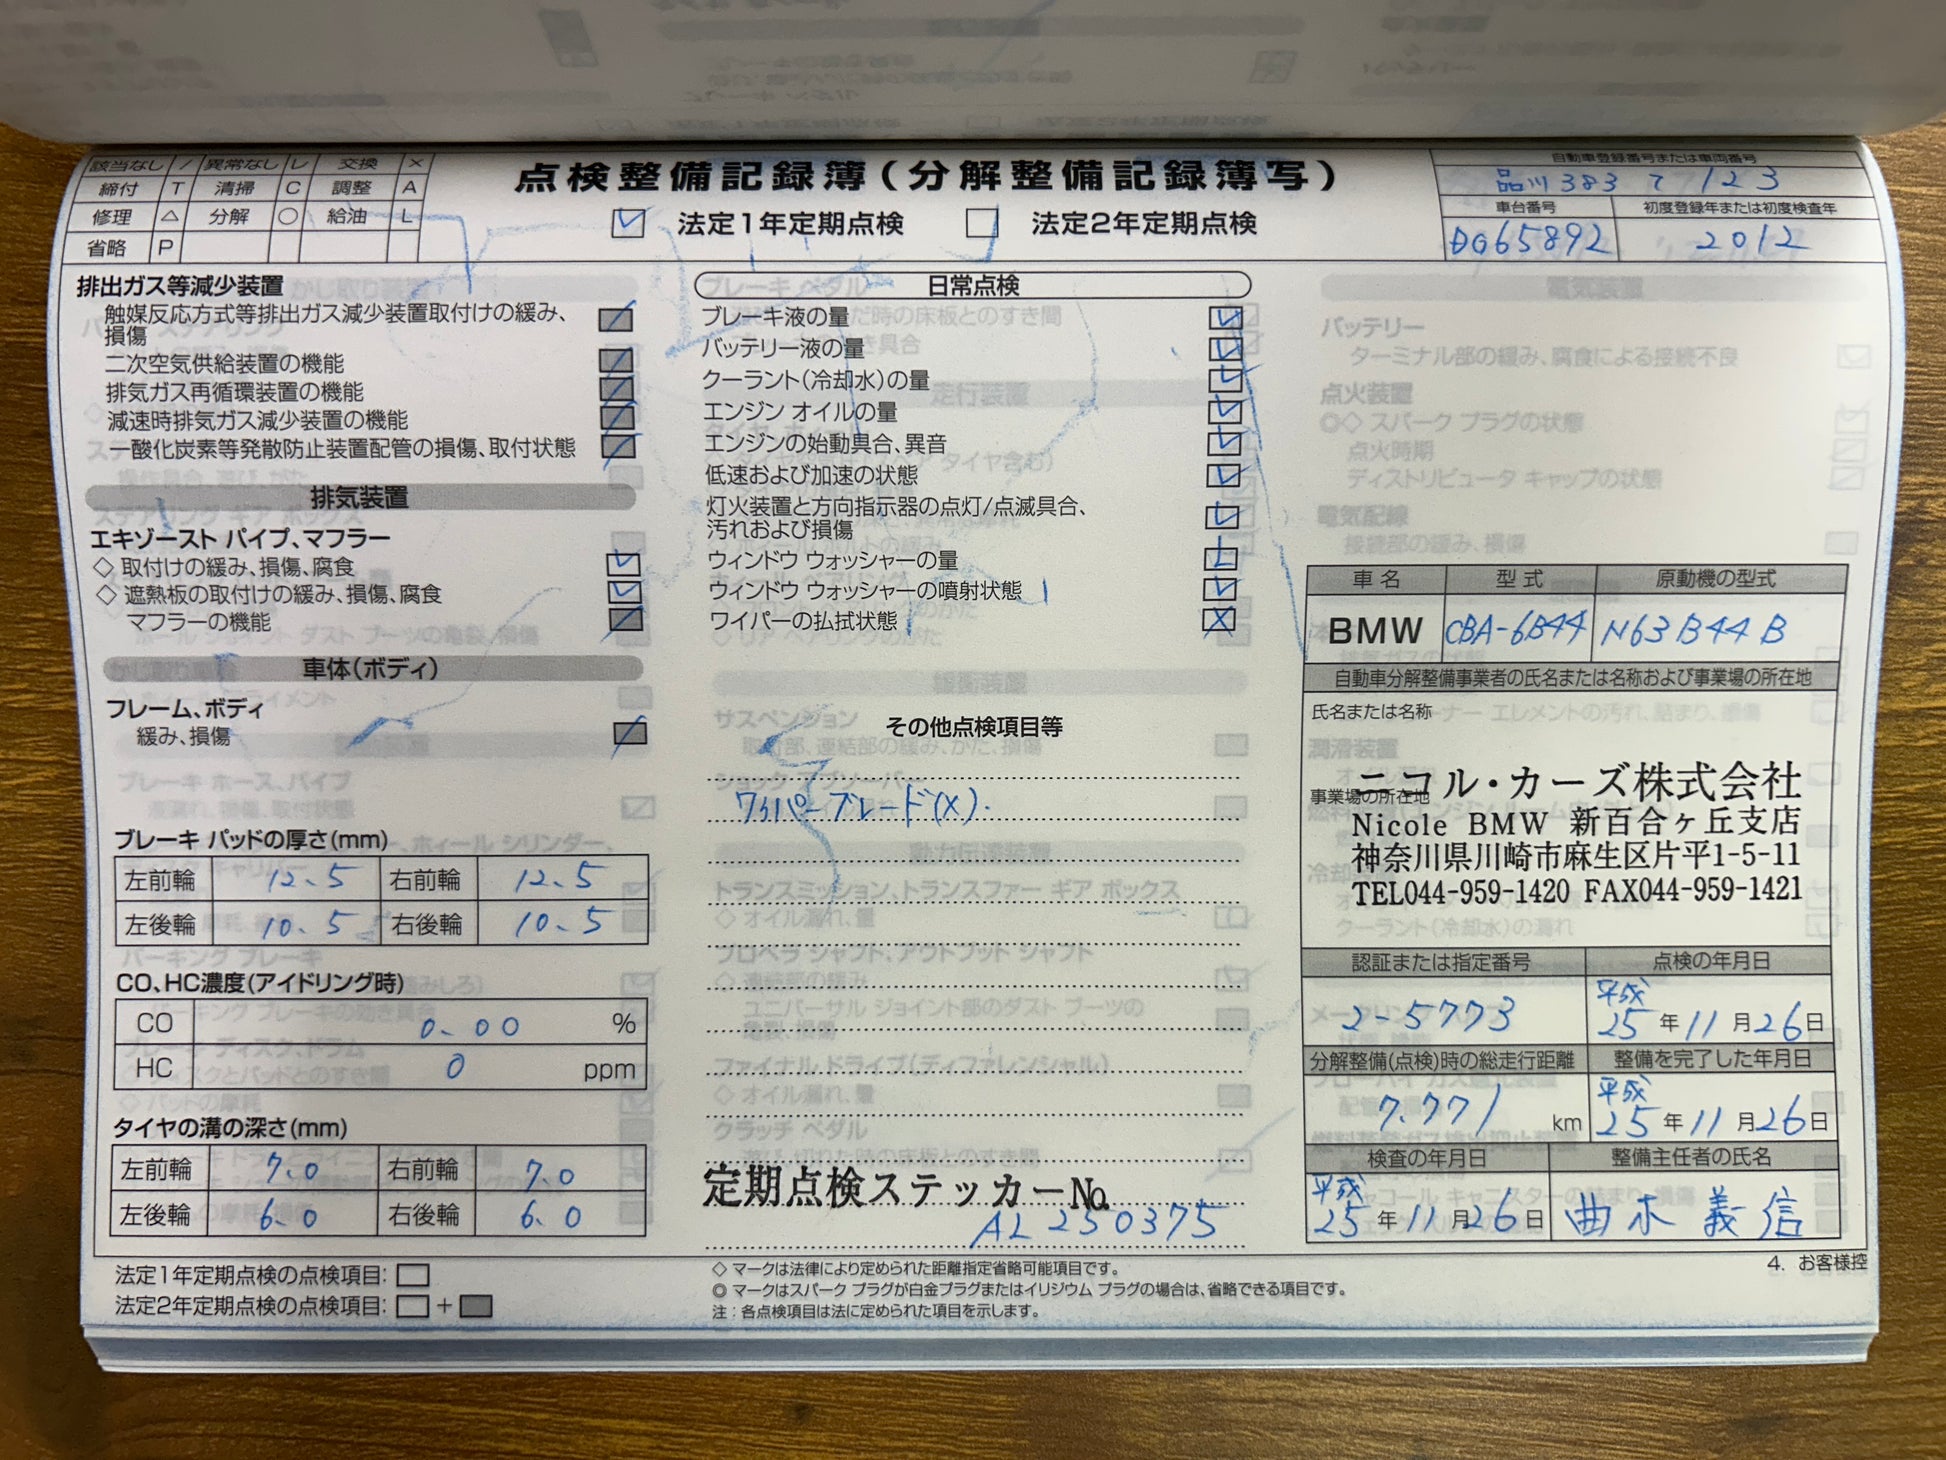 該当なし / 異常なし レ 交換 ×
締付 T 清掃 C 調整 A
修理 △ 分解 ○ 給油 L
省略 P
点検整備記録簿(分解整備記録簿写)
法定1年定期点検 法定2年定期点検
自動車登録番号または車両番号
品川 383 て 123
車台番号 初度登録年または初度検査年
DG65892 2012
排出ガス等減少装置
触媒反応方式等排出ガス減少装置取付けの緩み、
損傷
二次空気供給装置の機能
排気ガス再循環装置の機能
減速時排気ガス減少装置の機能
一酸化炭素等発散防止装置配管の損傷、取付状態
排気装置
エキゾースト パイプ、マフラー
◇ 取付けの緩み、損傷、腐食
◇ 遮熱板の取付けの緩み、損傷、腐食
マフラーの機能
車体(ボディ)
フレーム、ボディ
緩み、損傷
ブレーキ パッドの厚さ(mm)
左前輪 12.5 右前輪 12.5
左後輪 10.5 右後輪 10.5
CO、HC濃度(アイドリング時)
CO 0.00 %
HC 0 ppm
タイヤの溝の深さ(mm)
左前輪 7.0 右前輪 7.0
左後輪 6.0 右後輪 6.0
日常点検
ブレーキ液の量
バッテリー液の量
クーラント(冷却水)の量
エンジン オイルの量
エンジンの始動具合、異音
低速および加速の状態
灯火装置と方向指示器の点灯/点滅具合、
汚れおよび損傷
ウィンドウ ウォッシャーの量
ウィンドウ ウォッシャーの噴射状態
ワイパーの払拭状態
その他点検項目等
ワイパーブレード(X).
定期点検ステッカーNo.
AL 250375
車名 型式 原動機の型式
BMW CBA-6B44 N63B44B
自動車分解整備事業者の氏名または名称および事業場の所在地
氏名または名称
ニコル・カーズ株式会社
事業場の所在地
Nicole BMW 新百合ヶ丘支店
神奈川県川崎市麻生区片平1-5-11
TEL044-959-1420 FAX044-959-1421
認証または指定番号 点検の年月日
2-5773 平成25年11月26日
分解整備(点検)時の総走行距離 整備を完了した年月日
7.771 km 平成25年11月26日
検査の年月日 整備主任者の氏名
平成25年11月26日 曲木 義信
4. お客様控
法定1年定期点検の点検項目:
法定2年定期点検の点検項目: +
◇ マークは法律により定められた距離指定省略可能項目です。
◎ マークはスパーク プラグが白金プラグまたはイリジウム プラグの場合は、省略できる項目です。
注:各点検項目は法に定められた項目を示します。